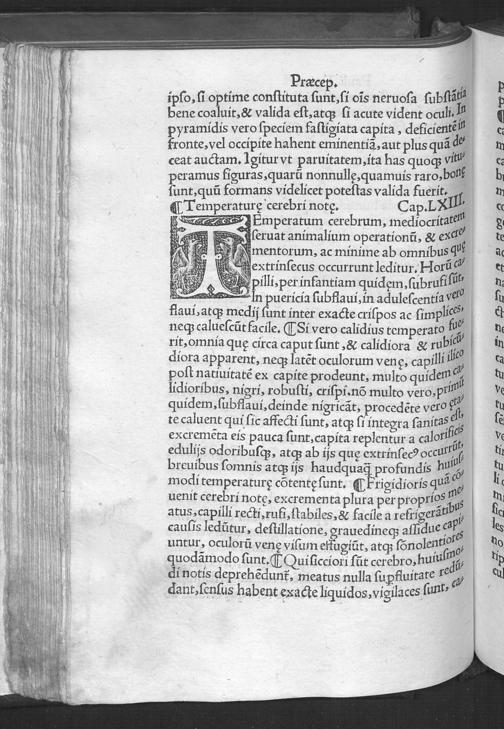 Præcep.
ipso, si optime constituta sunt, si oīs neruosa substātia
bene coaluit, & valida est, atq; si acute vident oculi. In
pyramidis vero speciem fastigiata capita, deficientē in
fronte, vel occipite habent eminentiā, aut plus quā de-
ceat auctam. Igitur vt paruitatem, ita has quoq; vitu-
peramus figuras, quarū nonnullę, quamuis raro, bonę
sunt, quū formans videlicet potestas valida fuerit.
¶ Temperaturę cerebri notę. Cap. LXIII.
TEmperatum cerebrum, mediocritatem
seruat animalium operationū, & excre-
mentorum, ac minime ab omnibus quę
extrinsecus occurrunt leditur. Horū ca-
pilli, per infantiam quidem, subrufi sūt,
In puericia subflaui, in adulescentia vero
flaui, atq; medij sunt inter exacte crispos ac simplices,
neq; caluescūt facile. ¶ Si vero calidius temperato fue-
rit, omnia quę circa caput sunt, & calidiora & rubicū-
diora apparent, neq; latēt oculorum venę, capilli ilico
post natiuitatē ex capite prodeunt, multo quidem ca-
lidioribus, nigri, robusti, crispi. nō multo vero, primū
quidem, subflaui, deinde nigricāt, procedēte vero ęta-
te caluent qui sic affecti sunt, atq; si integra sanitas est,
excremēta eis pauca sunt, capita replentur a calorificis
edulijs odoribusq;, atq; ab ijs quę extrinsecꝰ occurrūt,
breuibus somnis atq; ijs haudquaq̄ profundis huius
modi temperaturę cōtentę sunt. ¶ Frigidioris quā cō-
uenit cerebri notę, excrementa plura per proprios me-
atus, capilli recti, rufi, stabiles, & facile a refrigerātibus
causis ledūtur, destillatione, grauedineq; assidue capi-
untur, oculorū venę visum effugiūt, atq; sōnolentiores
quodāmodo sunt. ¶ Qui sicciori sūt cerebro, huiusmo-
di notis deprehēdunt᷑, meatus nulla supfluitate redū-
dant, sensus habent exacte liquidos, vigilaces sunt, ca-